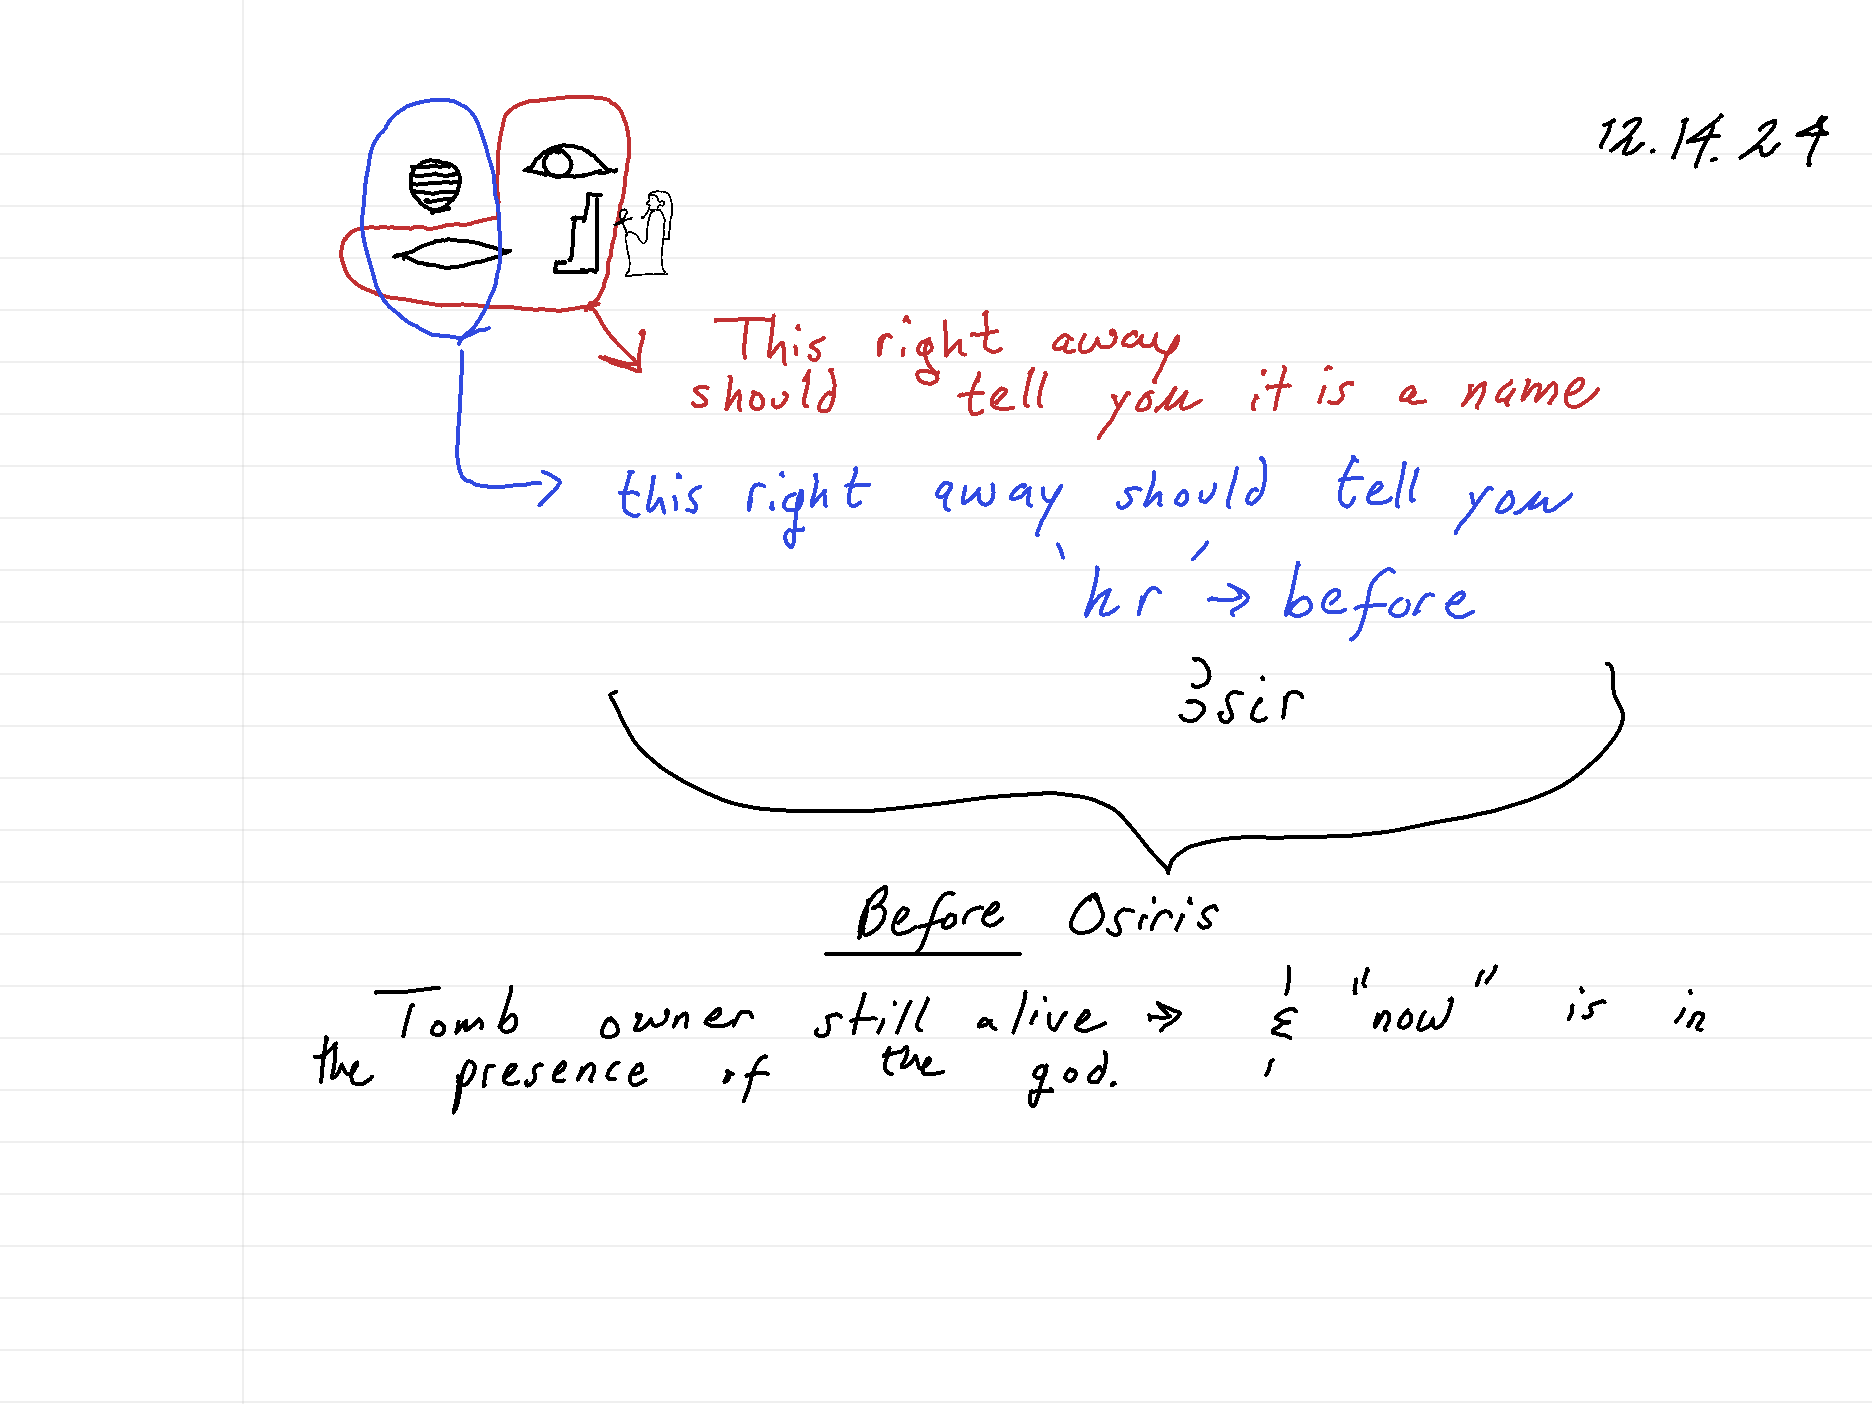 12.14.24
This right away
should tell you it is a name
this right away should tell you
'hr' → before
3sir
Before Osiris
Tomb owner still alive → & "now" is in
the presence of the god.